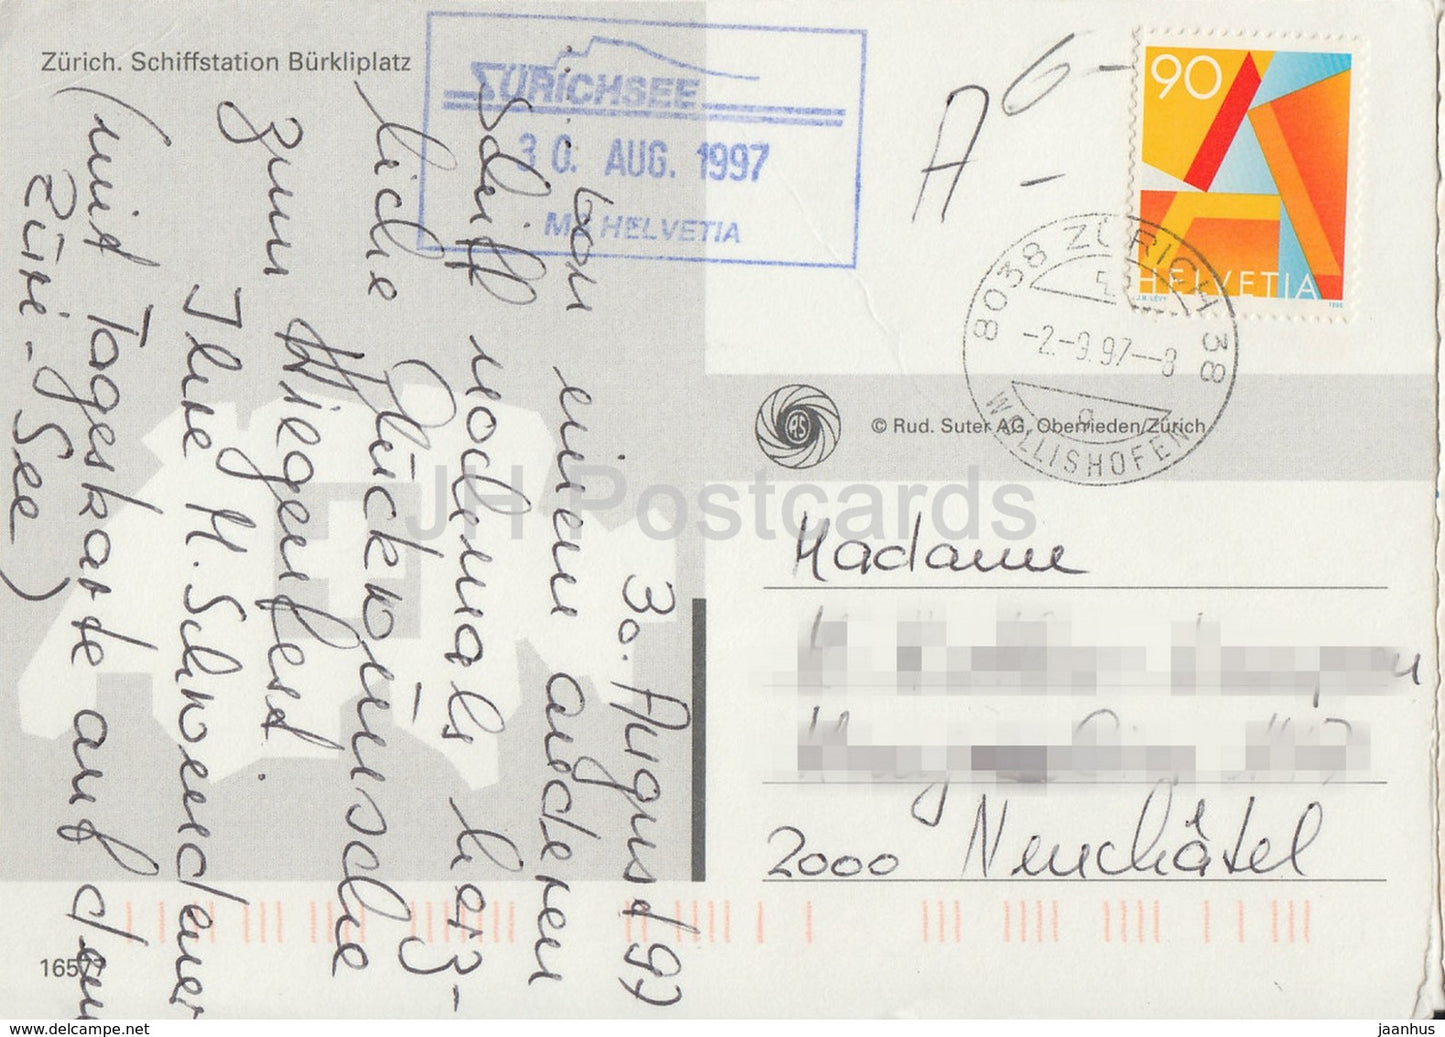 Zürich. Schiffstation Bürkliplatz
ZÜRICHSEE
30. AUG. 1997
MS HELVETIA
A
90
HELVETIA
J.B. LÉVY 1995
8038 ZÜRICH 38
-2.-9.97--8
WOLLISHOFEN
© Rud. Suter AG, Oberrieden/Zürich
30. August 97
Von einem anderen
Schiff nochmals herz-
liche Glückwünsche
zum Wiegenfest
Ihre M. Schweidener
(mit Tageskarte auf dem
Züri-See)
Madame
2000 Neuchâtel
16577
JH Postcards
www.delcampe.net
jaanhus